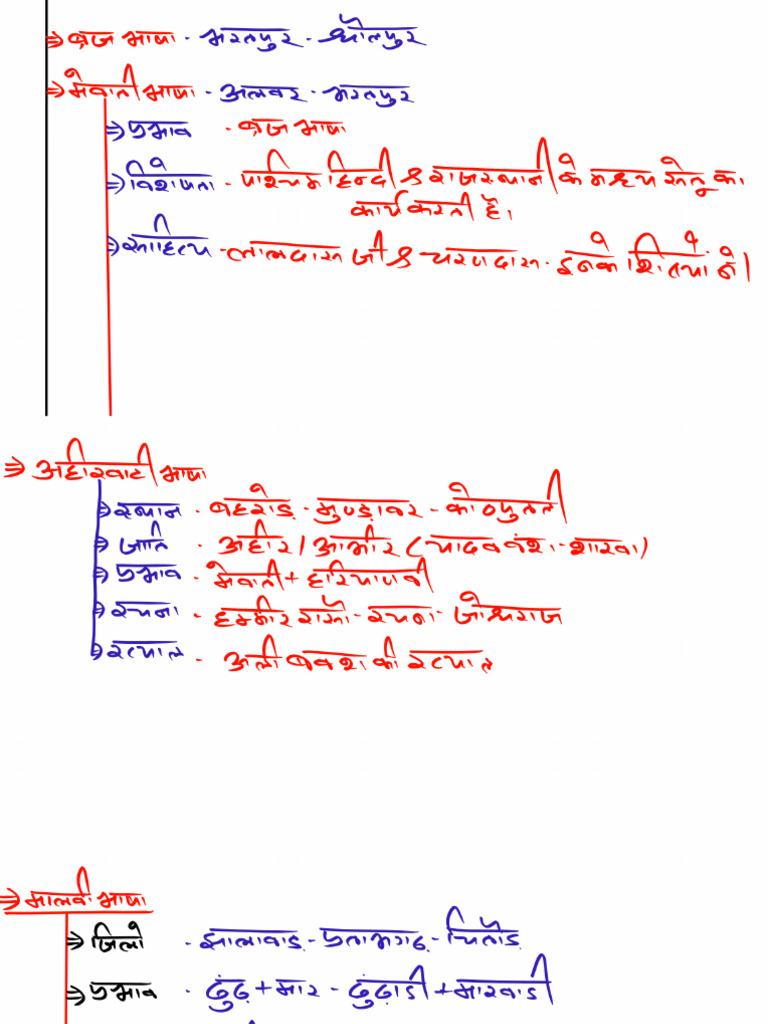 ⇒ ब्रज भाषा - भरतपुर - धौलपुर
⇒ मेवाती भाषा - अलवर - भरतपुर
⇒ प्रभाव - ब्रज भाषा
⇒ विशेषता - पश्चिम हिन्दी & राजस्थानी के मध्य सेतू का
कार्य करती है।
⇒ साहित्य - लालदास जी & चरणदास - इनके शिष्यों ने।
⇒ अहीरवाटी भाषा
⇒ स्थान - बहरोड़ - मुण्डावर - कोठपुतली
⇒ जाति - अहीर / आभीर (यादव वंश - शाखा)
⇒ प्रभाव - मेवाती + हरियाणवी
⇒ रचना - हम्मीर रासौ - रचना - जोधराज
⇒ ख्याल - अली बक्श की ख्याल
⇒ मालवी भाषा
⇒ जिले - झालावाड़ - प्रतापगढ़ - चितौड़
⇒ प्रभाव - ढुंढ़ + मार - ढुंढ़ाड़ी + मारवाडी